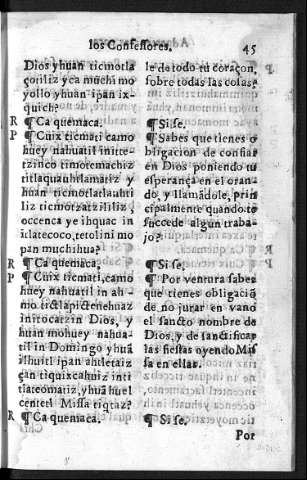 los Confessores.
45
Dios yhuan ticmotla
çotiliz yca muchi mo
yollo yhuan ipan ix-
quich?
R ¶ Ca quemaca.
P ¶ Cuix ticmati camo
huey nahuatil initte-
tzinco timotemachiz
titlaquauhtlamatiz y
huan ticmotlatlauhti
liz ticmotzatzililiz,
occenca ye ihquac in
itlatecoco, tetolini mo
pan muchihua?
R ¶ Ca quemaca,
P ¶ Cuix ticmati, camo
huey nahuatil in ah-
mo tictlapictenehuaz
initocatzin Dios, y
huan mohuey nahua-
til in Domingo yhuã
ilhuitl ipan ahtletaiz
çan tiquixcahuiz inti
tlateomatiz, yhuã huel
centetl Missa tiqtaz?
R ¶ Ca quemaca.
le de todo tu coraçon,
sobre todas las cosas?
¶ Si se.
¶ Sabes que tienes o
bligacion de confiar
en Dios poniendo tu
esperança en el oran-
do, y llamãdole, prin
cipalmente quando te
succede algun traba-
jo?
¶ Si se.
¶ Por ventura sabes
que tienes obligaciõ
de no jurar en vano
el sancto nombre de
Dios, y de sanctificar
las fiestas oyendo Mis
sa en ellas.
¶ Si se.
Por